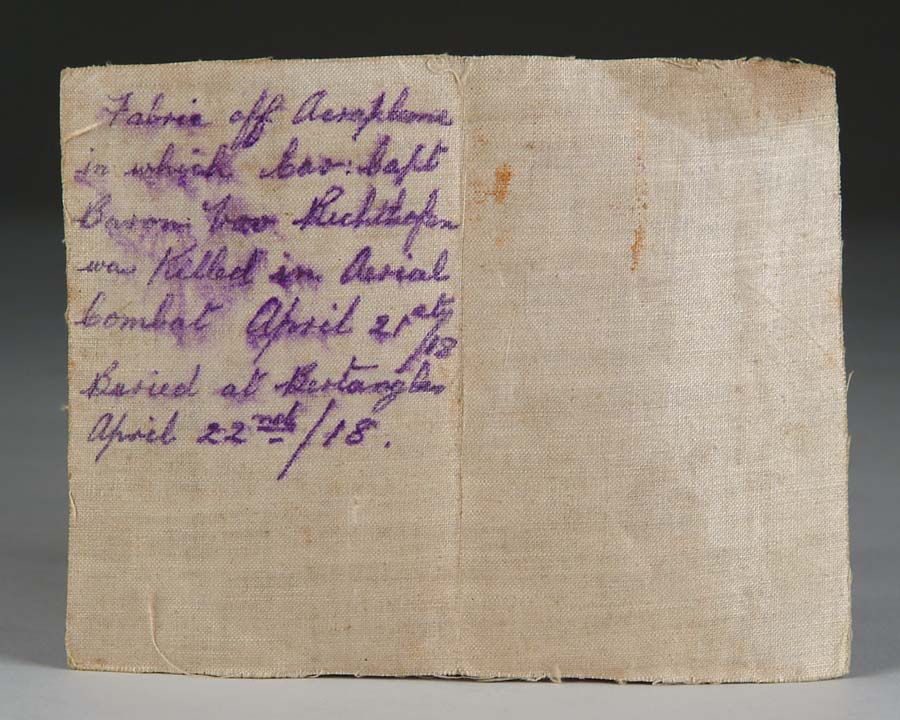 Fabric off Aeroplane
in which Cav: Capt
Baron Von Richthofen
was Killed in Aerial
Combat April 21st/18
Buried at Bertangles
April 22nd/18.